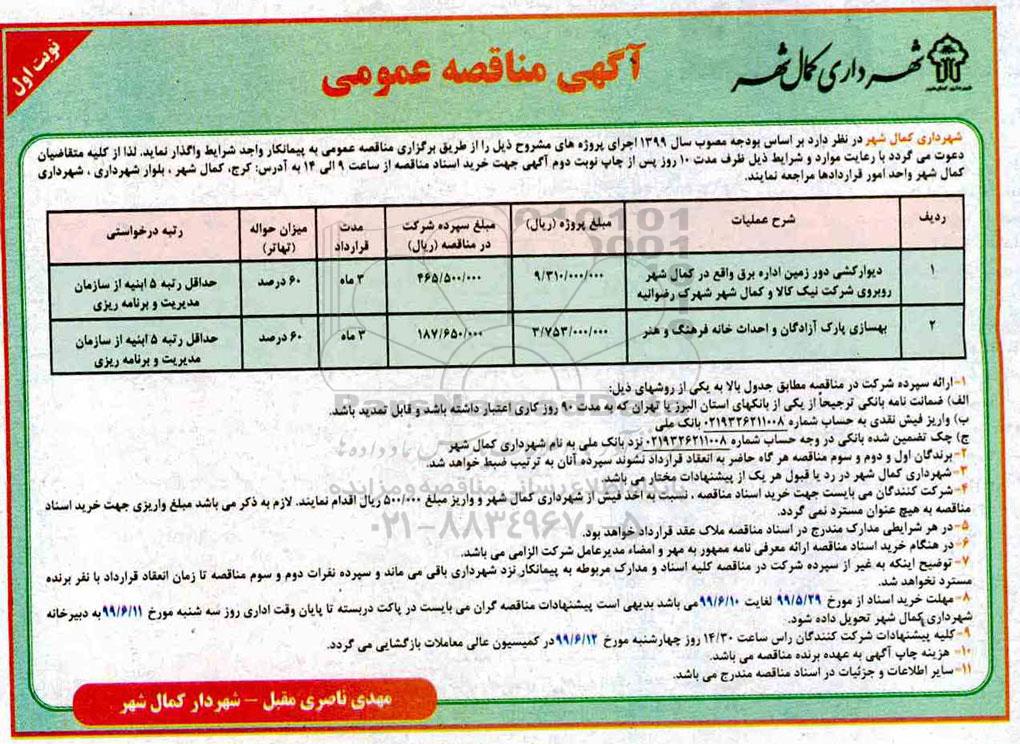 نوبت اول
آگهی مناقصه عمومی
شهرداری کمال شهر
شهرداری کمال شهر
شهرداری کمال شهر در نظر دارد بر اساس بودجه مصوب سال ۱۳۹۹ اجرای پروژه های مشروح ذیل را از طریق برگزاری مناقصه عمومی به پیمانکار واجد شرایط واگذار نماید. لذا از کلیه متقاضیان
دعوت می گردد با رعایت موارد و شرایط ذیل ظرف مدت ۱۰ روز پس از چاپ نوبت دوم آگهی جهت خرید اسناد مناقصه از ساعت ۹ الی ۱۴ به آدرس: کرج، کمال شهر ، بلوار شهرداری ، شهرداری
کمال شهر واحد امور قراردادها مراجعه نمایند.
ردیف شرح عملیات مبلغ پروژه (ریال) مبلغ سپرده شرکت در مناقصه (ریال) مدت قرارداد میزان حواله (تهاتر) رتبه درخواستی
۱ دیوارکشی دور زمین اداره برق واقع در کمال شهر روبروی شرکت نیک کالا و کمال شهر شهرک رضوانیه ۹/۳۱۰/۰۰۰/۰۰۰ ۴۶۵/۵۰۰/۰۰۰ ۳ ماه ۶۰ درصد حداقل رتبه ۵ ابنیه از سازمان مدیریت و برنامه ریزی
۲ بهسازی پارک آزادگان و احداث خانه فرهنگ و هنر ۳/۷۵۳/۰۰۰/۰۰۰ ۱۸۷/۶۵۰/۰۰۰ ۳ ماه ۶۰ درصد حداقل رتبه ۵ ابنیه از سازمان مدیریت و برنامه ریزی
۱-ارائه سپرده شرکت در مناقصه مطابق جدول بالا به یکی از روشهای ذیل:
الف) ضمانت نامه بانکی ترجیحاً از یکی از بانکهای استان البرز یا تهران که به مدت ۹۰ روز کاری اعتبار داشته باشد و قابل تمدید باشد.
ب) واریز فیش نقدی به حساب شماره ۰۲۱۹۳۲۶۲۱۱۰۰۸ بانک ملی
ج) چک تضمین شده بانکی در وجه حساب شماره ۰۲۱۹۳۲۶۲۱۱۰۰۸ نزد بانک ملی به نام شهرداری کمال شهر
۲-برندگان اول و دوم و سوم مناقصه هر گاه حاضر به انعقاد قرارداد نشوند سپرده آنان به ترتیب ضبط خواهد شد.
۳-شهرداری کمال شهر در رد یا قبول هر یک از پیشنهادات مختار می باشد
۴-شرکت کنندگان می بایست جهت خرید اسناد مناقصه ، نسبت به اخذ فیش از شهرداری کمال شهر و واریز مبلغ ۵۰۰/۰۰۰ ریال اقدام نمایند. لازم به ذکر می باشد مبلغ واریزی جهت خرید اسناد
مناقصه به هیچ عنوان مسترد نمی گردد.
۵-در هر شرایطی مدارک مندرج در اسناد مناقصه ملاک عقد قرارداد خواهد بود.
۶-در هنگام خرید اسناد مناقصه ارائه معرفی نامه ممهور به مهر و امضاء مدیرعامل شرکت الزامی می باشد.
۷-توضیح اینکه به غیر از سپرده شرکت در مناقصه کلیه اسناد و مدارک مربوطه به پیمانکار نزد شهرداری باقی می ماند و سپرده نفرات دوم و سوم مناقصه تا زمان انعقاد قرارداد با نفر برنده
مسترد نخواهد شد.
۸-مهلت خرید اسناد از مورخ ۹۹/۵/۲۹ لغایت ۹۹/۶/۱۰ می باشد بدیهی است پیشنهادات مناقصه گران می بایست در پاکت دربسته تا پایان وقت اداری روز سه شنبه مورخ ۹۹/۶/۱۱ به دبیرخانه
شهرداری کمال شهر تحویل داده شود.
۹-کلیه پیشنهادات شرکت کنندگان راس ساعت ۱۴/۳۰ روز چهارشنبه مورخ ۹۹/۶/۱۲ در کمیسیون عالی معاملات بازگشایی می گردد.
۱۰- هزینه چاپ آگهی به عهده برنده مناقصه می باشد.
۱۱-سایر اطلاعات و جزئیات در اسناد مناقصه مندرج می باشد.
مهدی ناصری مقبل - شهردار کمال شهر
ParsNamadData
۰۲۱-۸۸۳۴۹۶۷۰-۵